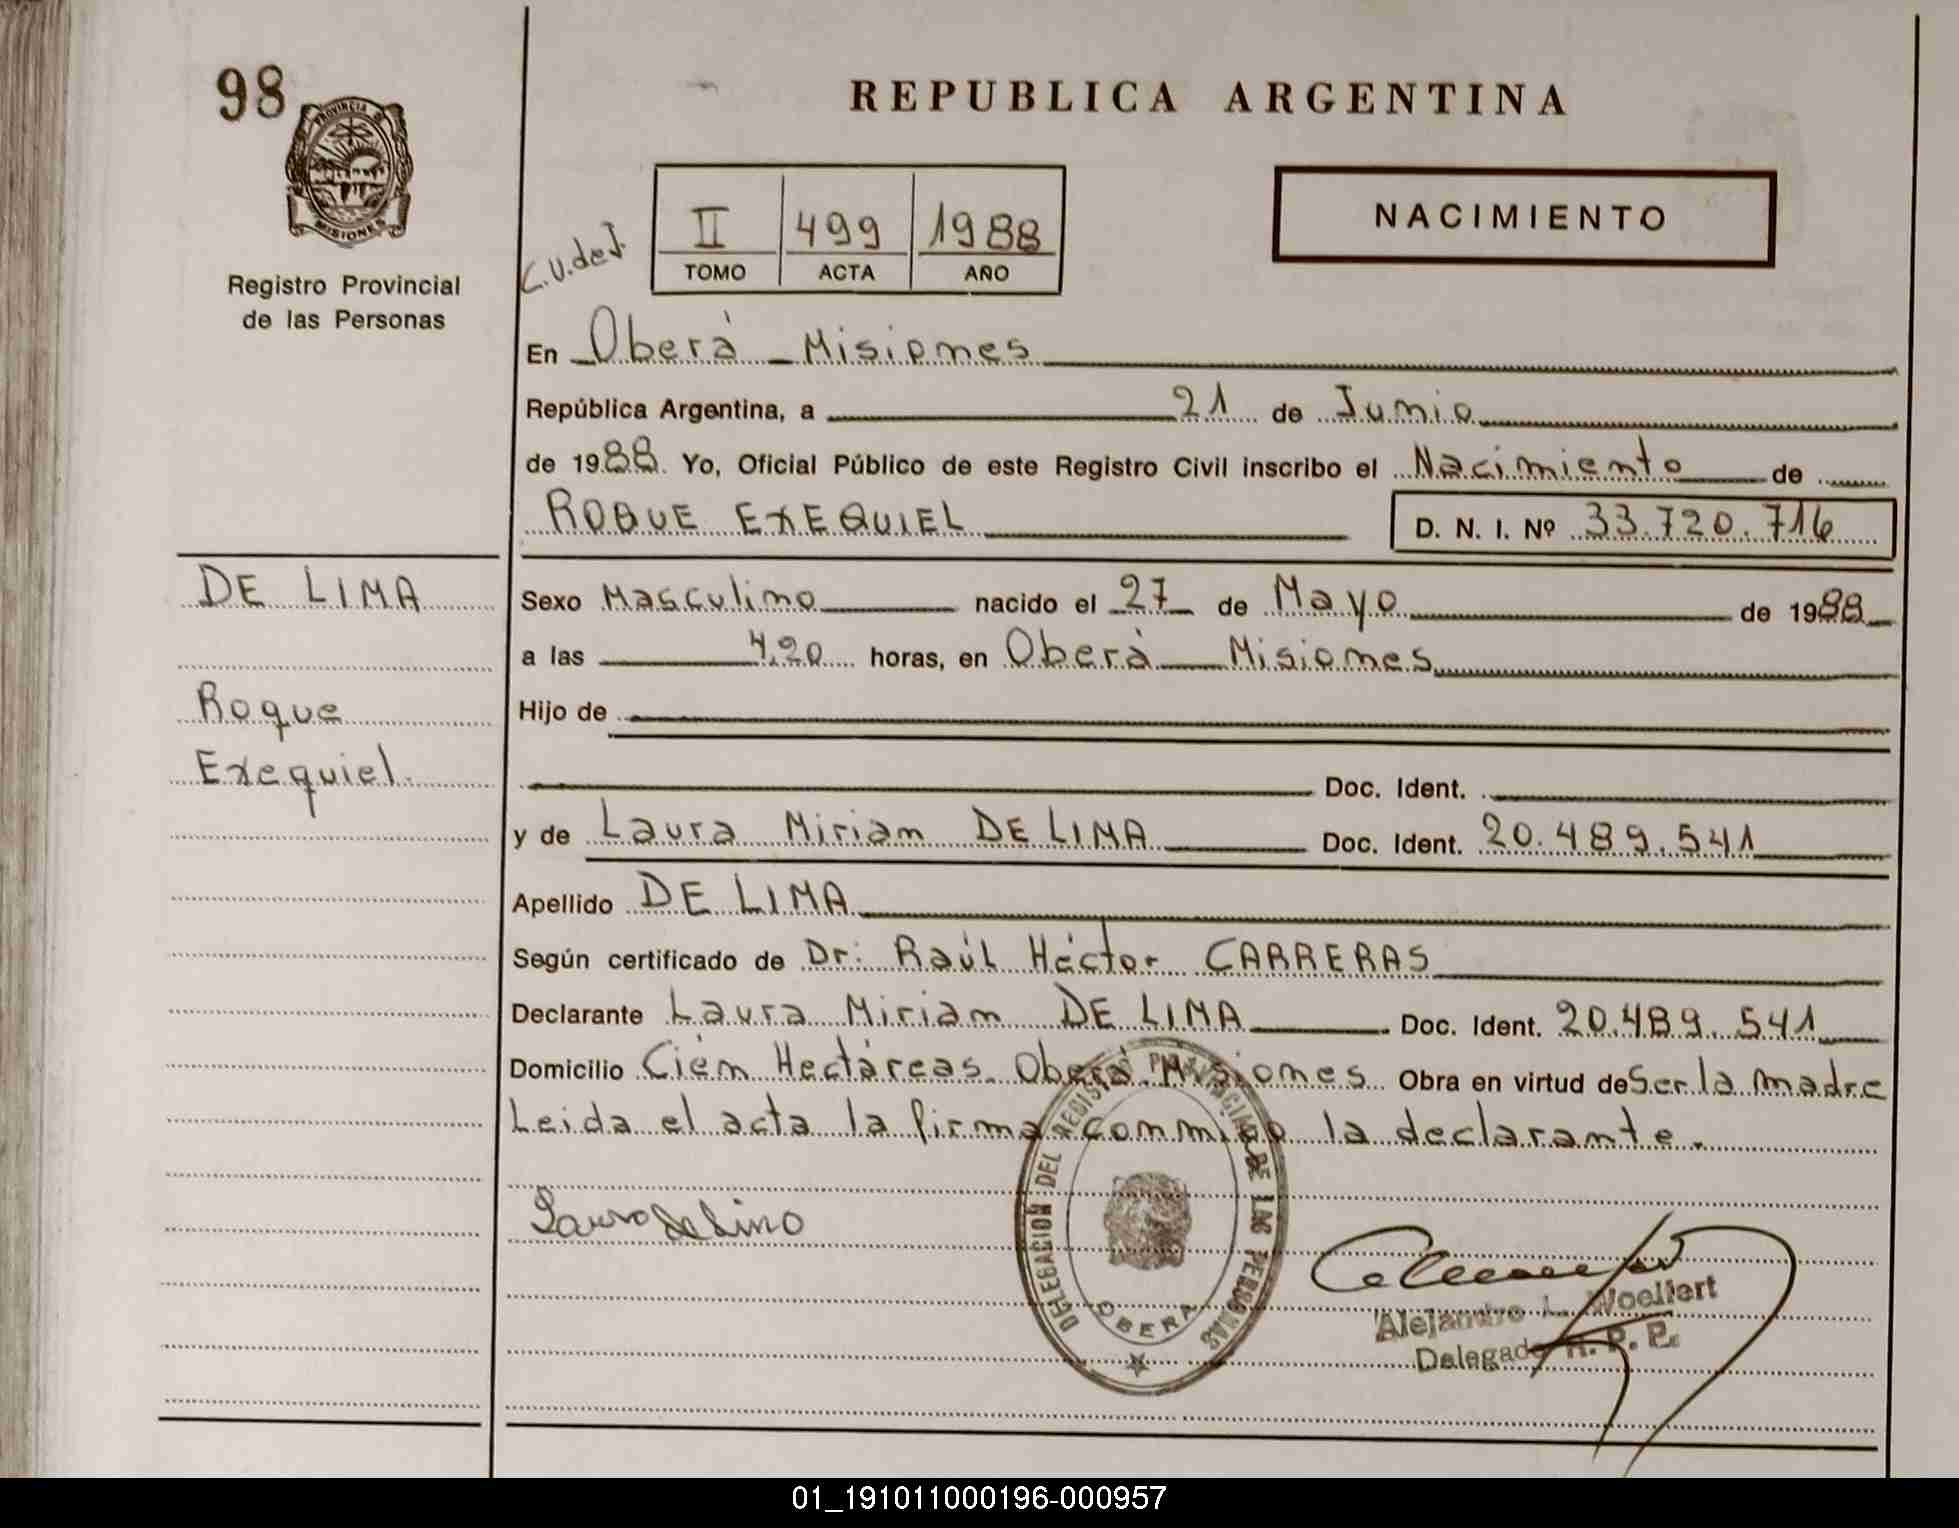 98
REPUBLICA ARGENTINA
PROVINCIA DE
MISIONES
Registro Provincial
de las Personas
C.U.deJ.
II 499 1988
TOMO ACTA AÑO
NACIMIENTO
En Oberá Misiones
República Argentina, a 21 de Junio
de 1988. Yo, Oficial Público de este Registro Civil inscribo el Nacimiento de
ROQUE EXEQUIEL D. N. I. Nº 33.720.716
DE LIMA
Roque
Exequiel.
Sexo Masculino nacido el 27 de Mayo de 1988
a las 4,20 horas, en Oberá Misiones
Hijo de
Doc. Ident.
y de Laura Miriam DE LIMA Doc. Ident. 20.489.541
Apellido DE LIMA
Según certificado de Dr: Raúl Héctor CARRERAS
Declarante Laura Miriam DE LIMA Doc. Ident. 20.489.541
Domicilio Cién Hectáreas. Oberá Misiones Obra en virtud de Ser la madre
Leida el acta la firma conmigo la declarante.
DELEGACION DEL REGISTRO PROVINCIAL DE LAS PERSONAS
OBERA
Alejandro L. Woelfert
Delegado R. P. P.
01_191011000196-000957